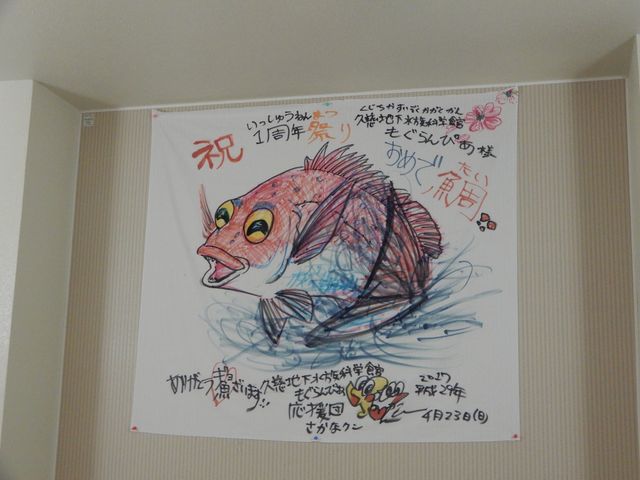 祝
いっしゅうねん まつ
1周年 祭り
くじちかすいぞくかがくかん
久慈地下水族科学館
もぐらんぴあ様
おめで鯛
たい
ありがとうギョざいます!!
久慈地下水族科学館
もぐらんぴあ
応援団
さかなクン
2017
平成29年
4月23日(日)